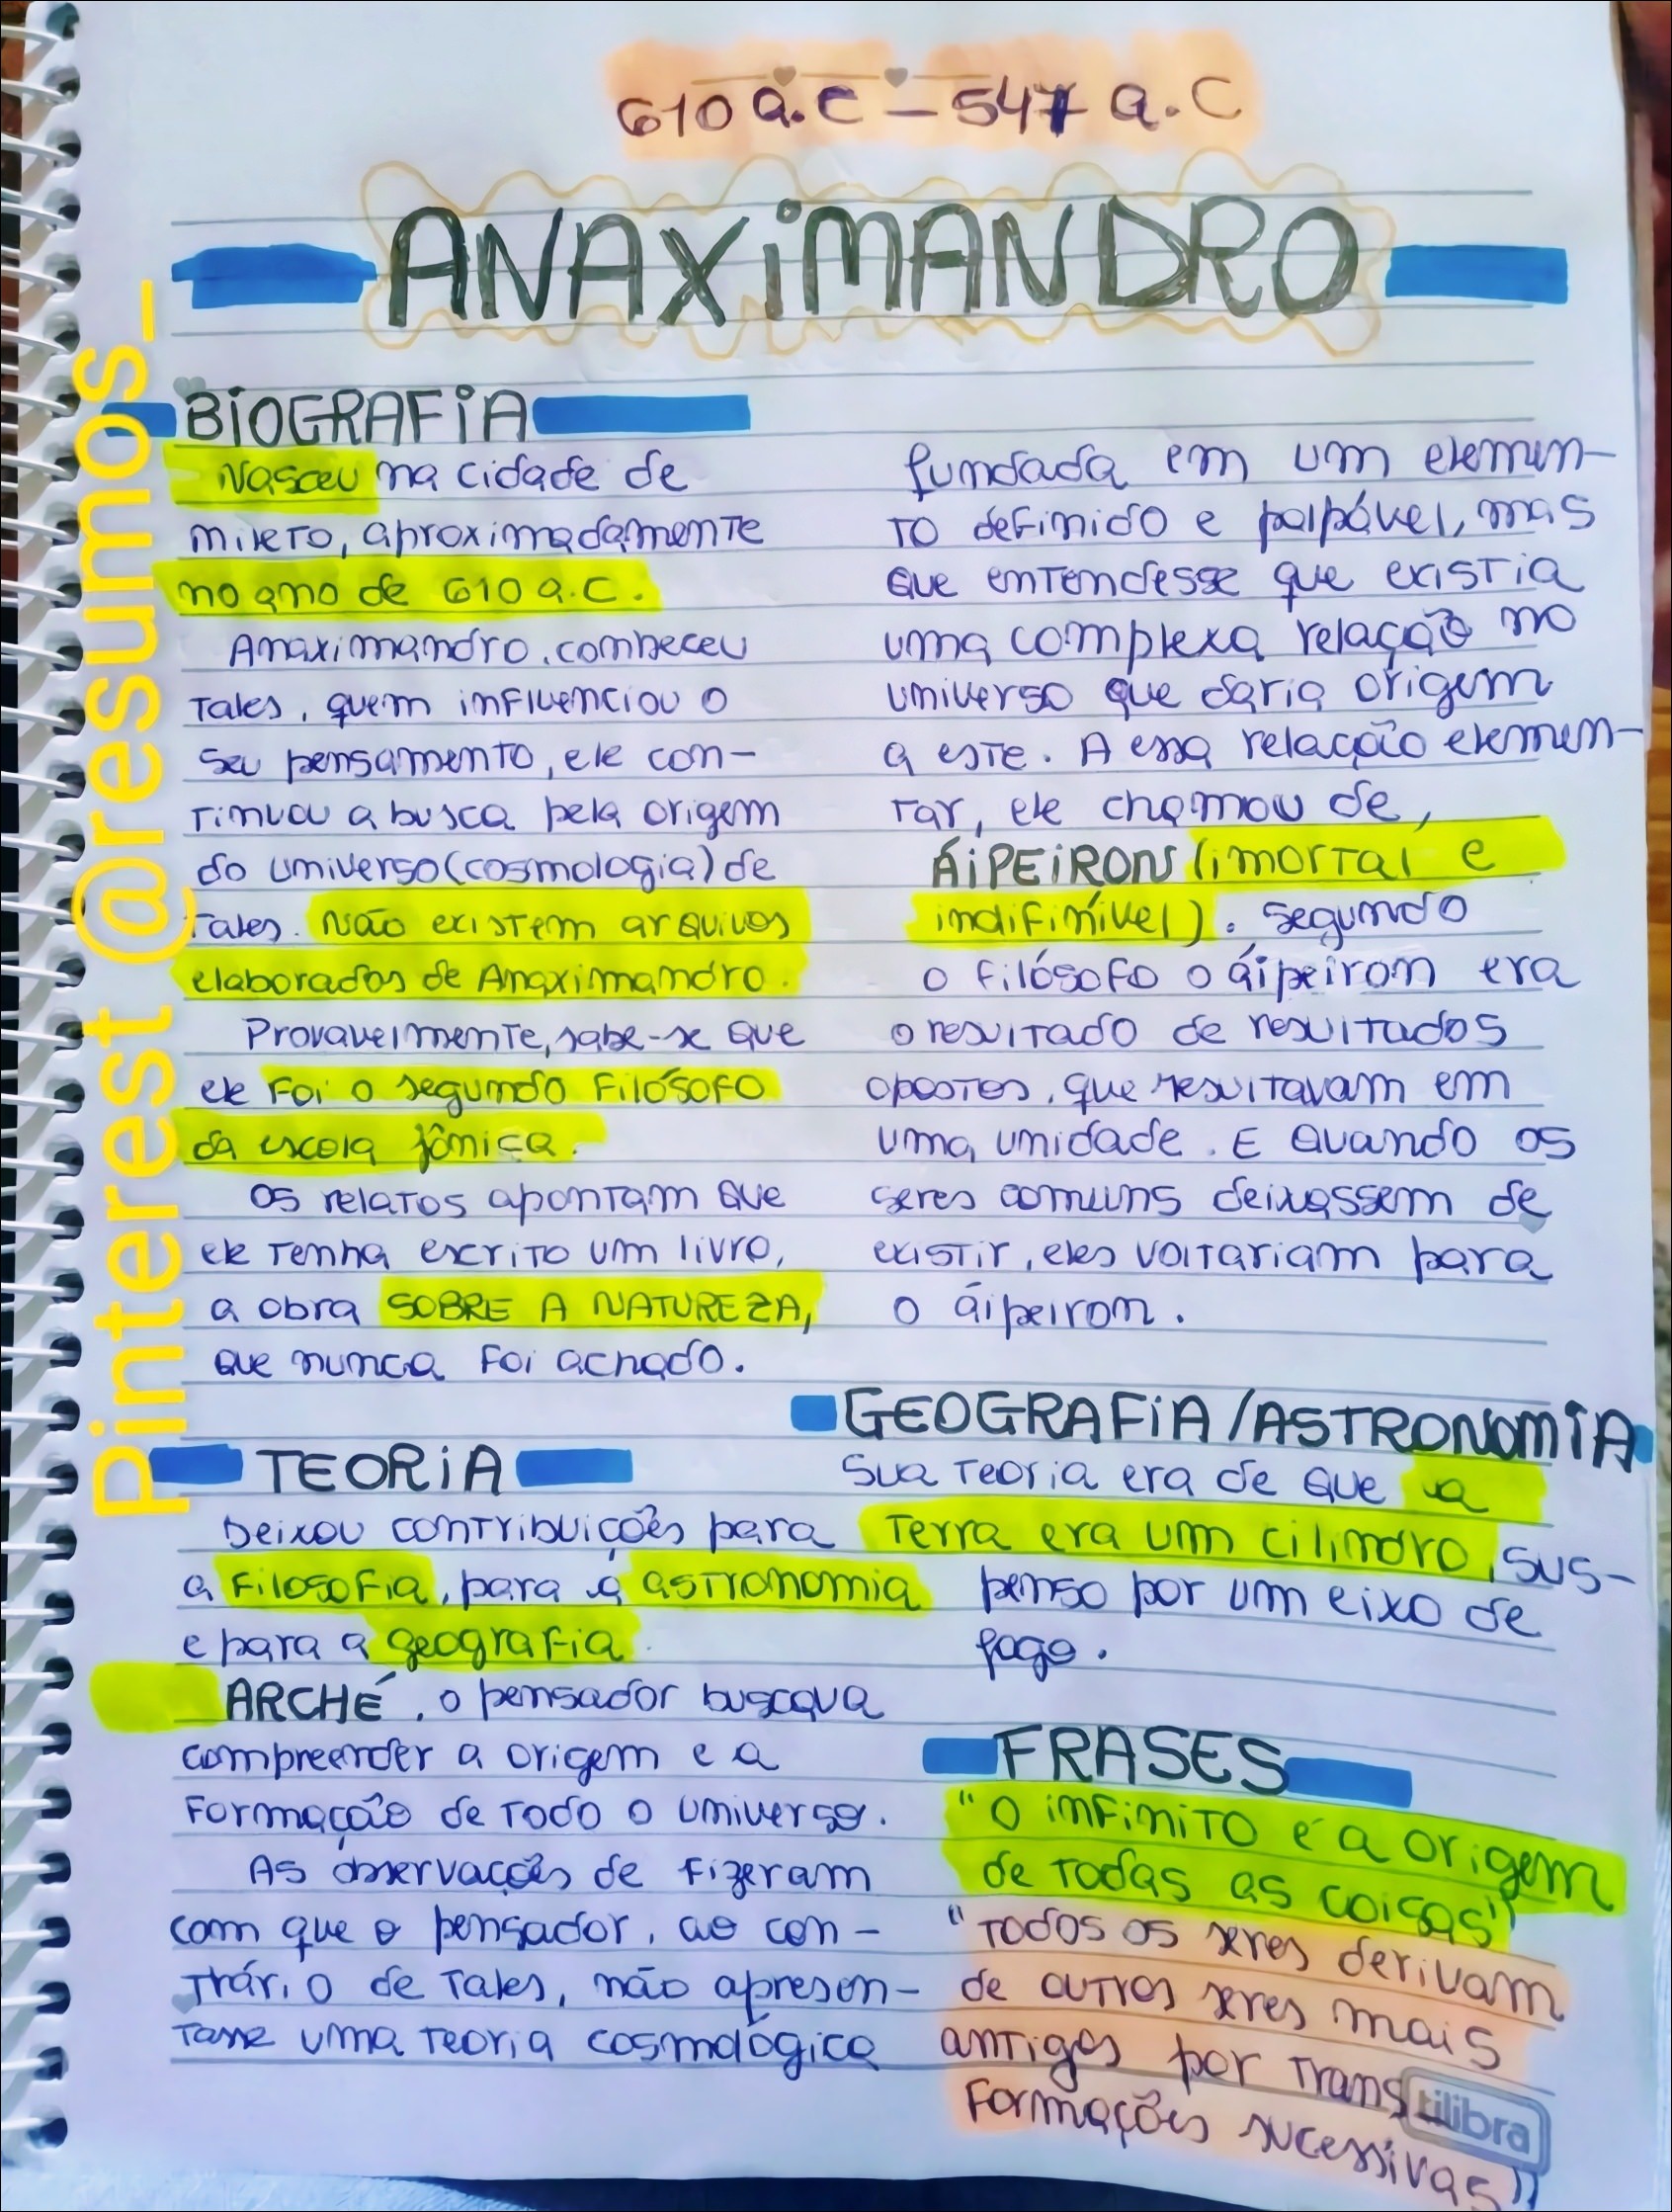 610 a.C – 547 a.C
ANAXIMANDRO
BIOGRAFIA
Nasceu na cidade de
mileto, aproximadamente
no ano de 610 a.C.
Anaximandro, conheceu
Tales, quem influenciou o
seu pensamento, ele con-
tinuou a busca pela origem
do universo (cosmologia) de
Tales. Não existem arquivos
elaborados de Anaximandro.
Provavelmente, sabe-se que
ele foi o segundo filósofo
da escola jônica.
Os relatos apontam que
ele tenha escrito um livro,
a obra SOBRE A NATUREZA,
que nunca foi achado.
TEORIA
Deixou contribuições para
a filosofia, para a astronomia
e para a geografia.
ARCHÉ, o pensador buscava
compreender a origem e a
formação de todo o universo.
As observações de fizeram
com que o pensador, ao con-
trário de Tales, não apresen-
tasse uma teoria cosmológica
fundada em um elemen-
to definido e palpável, mas
que entendesse que existia
uma complexa relação no
universo que daria origem
a este. A essa relação elemen-
tar, ele chamou de,
ÁIPEIRON (imortal e
indifinível). Segundo
o filósofo o áipeiron era
o resultado de resultados
opostos, que resultavam em
uma unidade. E quando os
seres comuns deixassem de
existir, eles voltariam para
o áipeiron.
GEOGRAFIA/ASTRONOMIA
Sua teoria era de que a
Terra era um cilindro, sus-
penso por um eixo de
fogo.
FRASES
"O infinito é a origem
de todas as coisas"
"Todos os seres derivam
de outros seres mais
antigos por trans-
formações sucessivas"
tilibra
Pinterest @resumos_